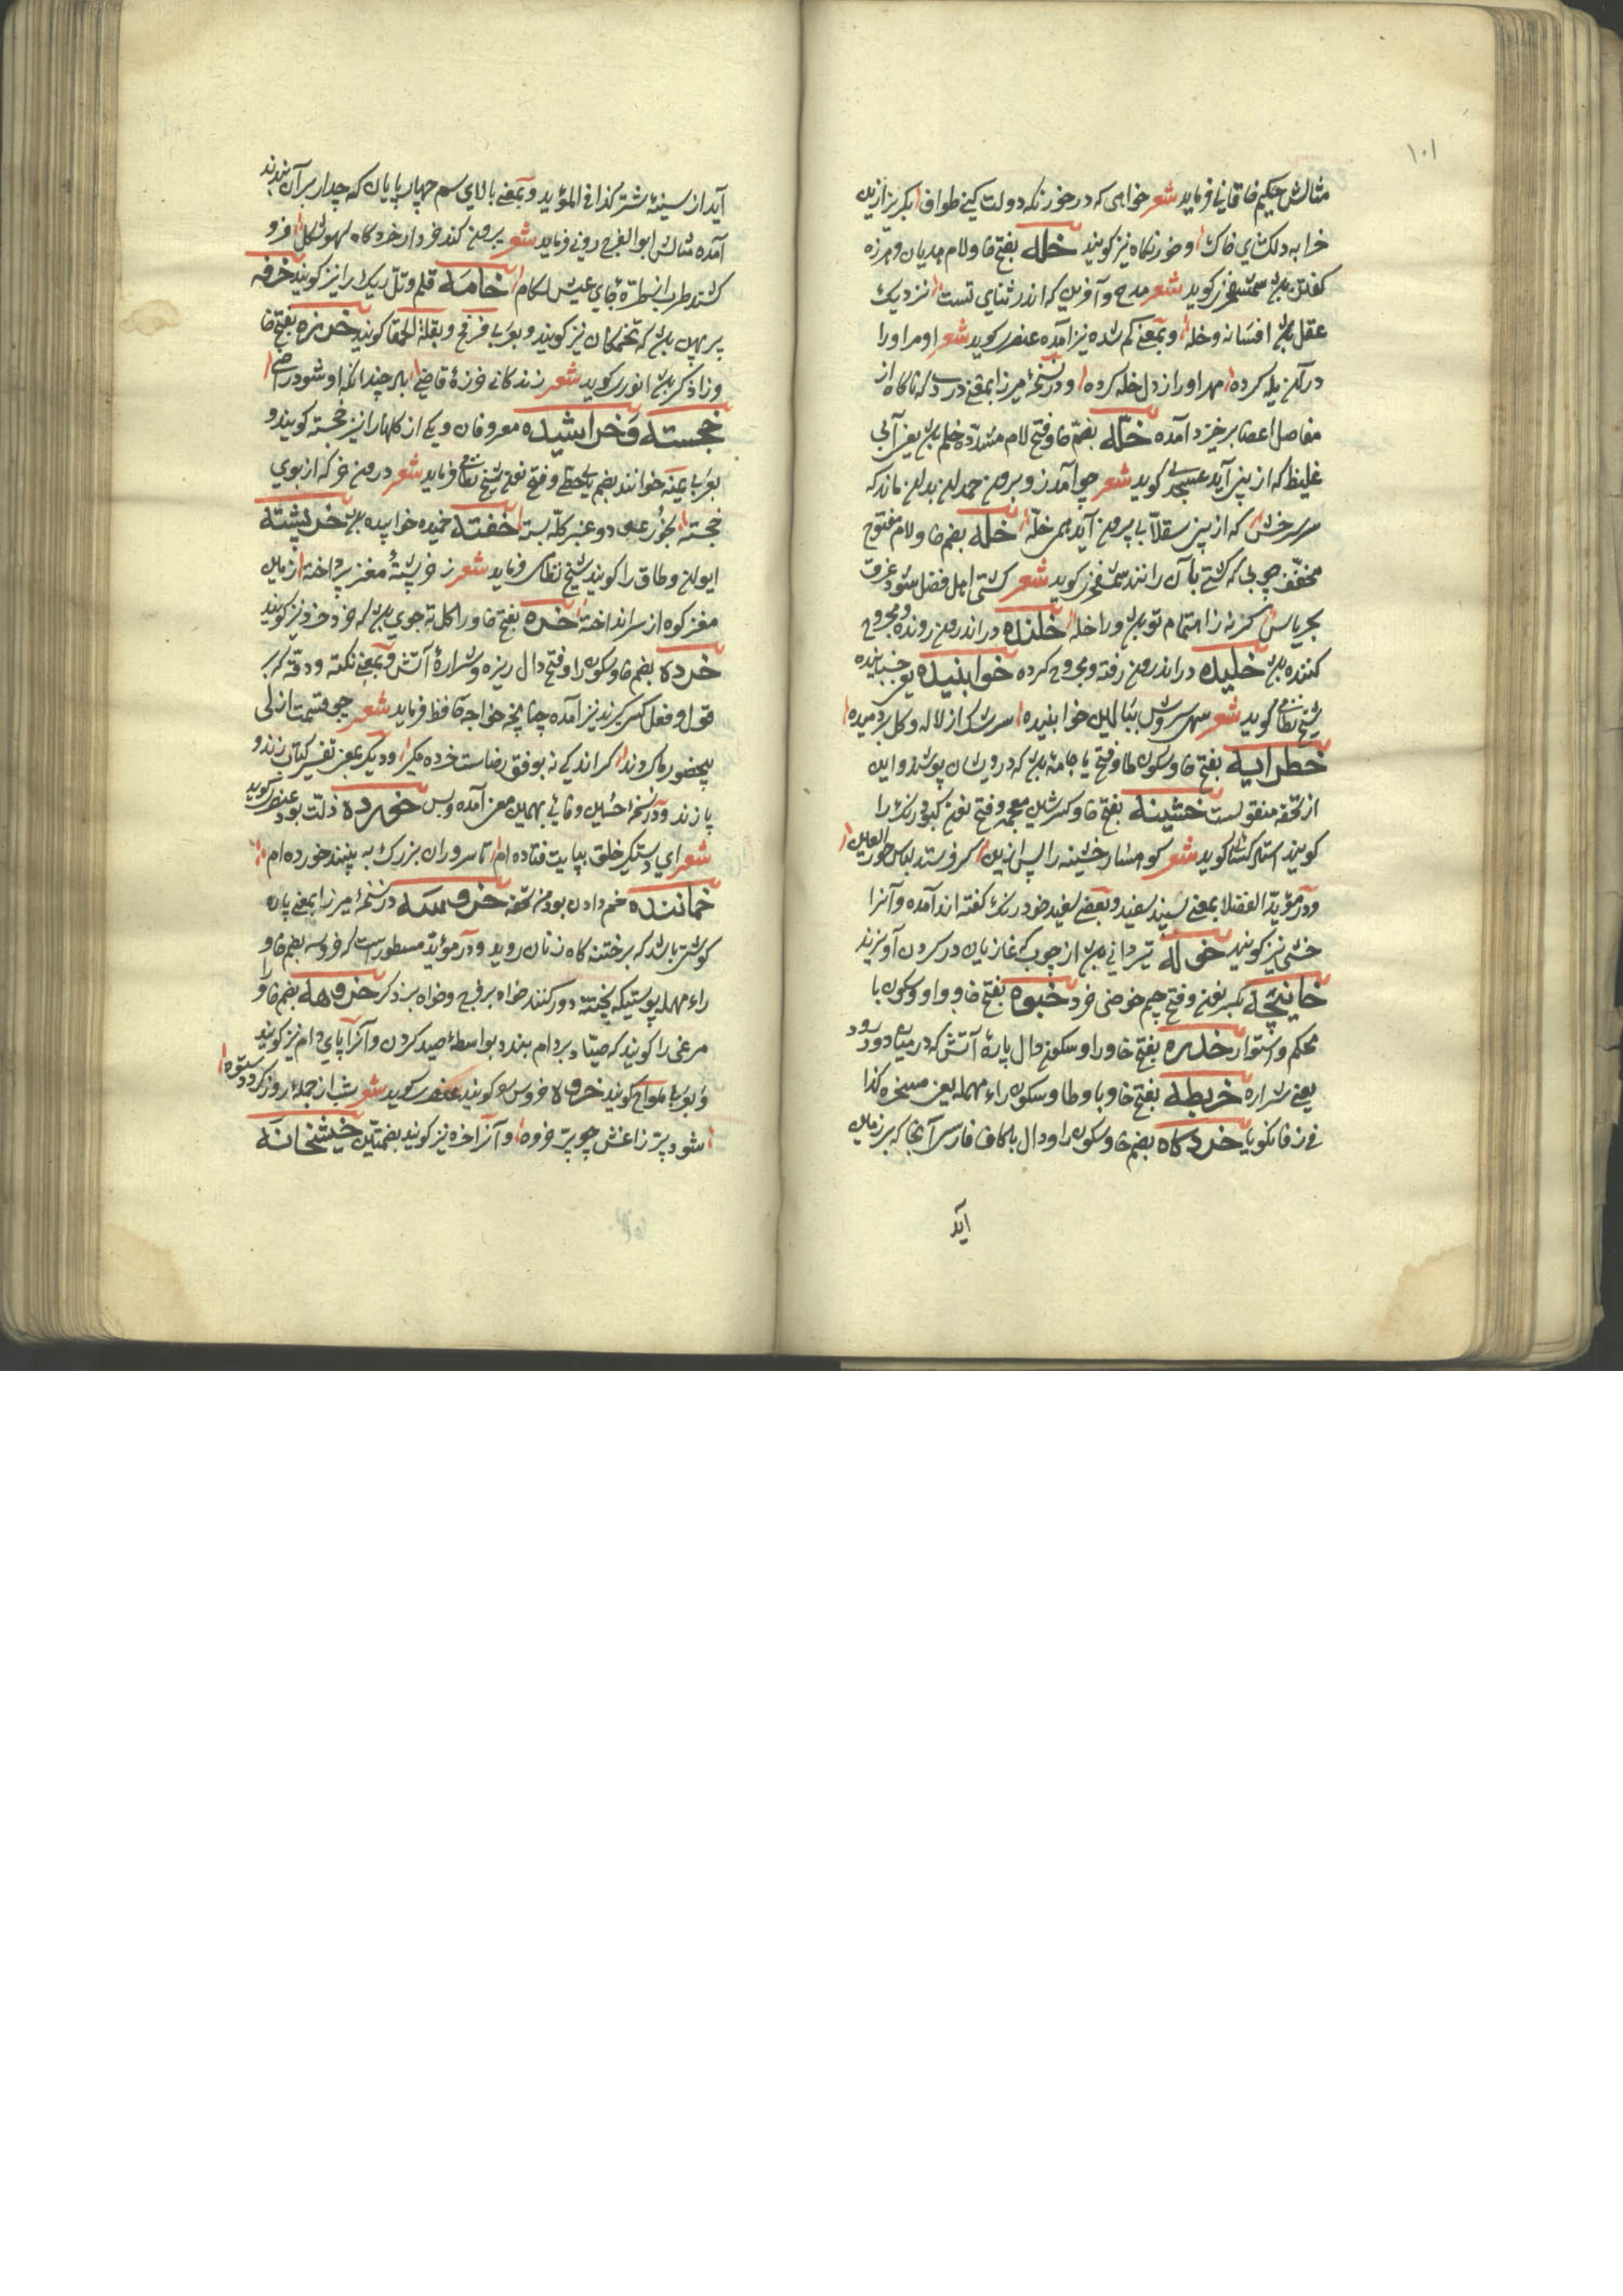 ۱۰۱
مثالش حکیم خاقانی فرماید شعر خواهی که در خورنکه دولت کنی طواف بکریز ازین
خرابه دلکشای خاک و خورنکاه نیز کویند خله بفتح خا و لام هذیان و هرزه
کفتن باشد شمس فخری کوید شعر مدح و آفرین که اندر ثنای تست نزدیک
عقل باشد افسانه و خله و بمعنی کم شده نیز آمده عنصری کوید شعر او مرا ورا
در آن یله کرده مهر اورا ز دل خله کرده و در نسخهٔ میرزا بمعنی دردی که ناکاه از
مفاصل اعضا برخیزد آمده خلّه بضم خا و فتح لام مشدّده خلم باشد یعنی آبی
غلیظ که از بینی آید عسجدی کوید شعر چو آمد زو برون حمدان بدان ماند که
سرسرخش که از بینی سقلابی برون آید همی خلّه خله بضم خا و لام مفتوح
مخفّف چوبی که کشتی بآن رانند شمس فخری کوید شعر کشتی اهل فضل شود غرق
بحر یاس کرنه ز اهتمام تو باشد ورا خله خلنده در اندرون رونده و مجروح
کننده باشد خلیده در اندرون رفته و مجروح کرده خوابنیده خسبانیده
شیخ نظامی کوید شعر سهی سروش ببالین خوابنیده سرشک از لاله و کل بردمیده
خطرابیه بفتح خا و سکون طا و فتح یا جامه باشد که درویشان پوشند و این
از تحفه منقولست خشینه بفتح خا و کسر شین معجمه و فتح نون کبود رنک را
کویند استاد کسائی کوید شعر کوهسار خشینه را پس ازین کی فرستد لباس حور العین
و در مؤید الفضلا بمعنی سپید سفید و بعضی سفید خود رنک کفته اند آمده و آنرا
خشی نیز کویند خوله تیردانی باشد از چوب که غازیان در سرون آویزند
خانیچه بکسر نون و فتح چیم حوضی خرد خبوه بفتح خا و واو و سکون با
محکم و استوار خدره بفتح خا و را و سکون دال پارهٔ آتش که در میان دود رود
یعنی شراره خربطه بفتح خا و با و طا و سکون راء مهمله یعنی مسخره کذا
فی زفانکویا خردکاه بضم خا و سکون را و دال با کاف فارسی آنجا که بر زمین
آید
آید از سینهٔ شتر کذا فی المؤید و بمعنی بالای سم چهارپایان که چدار بر آن بندند
آمده مثالش ابوالفرج رونی فرماید شعر برون کند خرد از خردکاه لهو شکل فرو
کشد طرب از طرهٔ جای عیش لکام خامه قلم و تل ریک را نیز کویند خرفه
پرپهن باشد که تخمکان نیز کویند و بعربی فرفخ و بقلة الحمقا کویند خرزه بفتح خا
و زا ذکر باشد انوری کوید شعر زندکانی خرزهٔ قاضی باد چندانکه او شود راضی
خجسته و خراشیده معروفان و یکی از کلها را نیز خجسته کویند و
بعربی عینه خوانند بضم یا حطی و فتح نون شیخ نظامی فرماید شعر درون خرکه از بوی
خجسته بخور عود و عنبر کله بسته خفته خمیده خوابیده باشد خرپشته
ایوان و طاق را کویند شیخ نظامی فرماید شعر ز خرپشتهٔ مغز پرداخته زمین
مغز کوه از سر انداخته خره بفتح خا و را کل ته جوی باشد که خرد خرد نیز کویند
خرده بضم خا و سکون را و فتح دال ریزه و شرارهٔ آتش و بمعنی نکته و دقه که بر
قول و فعل کسی کیرند نیز آمده چنانچه خواجه حافظ فرماید شعر چو قسمت ازلی
بیحضور ما کردند کر اندکی نه بوفق رضاست خرده مکیر و دیکر بمعنی تفسیر کتاب زند و
پازند و در نسخهٔ حسین وفائی بهمین معنی آمده و بس خورده ذلت بود عنصری کوید
شعر ای دستکیر خلق بپایت فتاده ام تا سروران بزرک به بینند خورده ام
خماننده خم دادن بود من تحفه خروسه در نسخهٔ میرزا بمعنی پاره
کوشتی باشد که بر ختنه کاه زنان روید و در مؤید مسطور است که خروسه بضم خا و
راء مهمله پوستیکه بختنه دور کنند خواه بر فرج و خواه بر ذکر خروهه بضم خا و را
مرغی را کویند که صیّاد بردام بندد بواسطهٔ صید کردن و آنرا پای دام نیز کویند
و بعربی ملواح کویند خروه خروس کویند عنصری کوید شعر شب از جملهٔ روز کردد ستوه
شود پر زاغش چو پر خروه و آنرا خره نیز کویند بضمتین خیشخانه